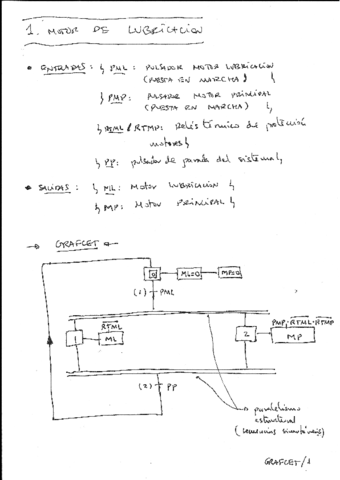 1. MOTOR DE LUBRICACION
• ENTRADAS : { PML : PULSADOR MOTOR LUBRICACION
(PUESTA EN MARCHA) }
{ PMP : PULSADOR MOTOR PRINCIPAL
(PUESTA EN MARCHA) }
{ RTML / RTMP : Relés térmico de protección
motores }
{ PP : pulsador de parada del sistema }
• SALIDAS : { ML : Motor LUBRICACION }
{ MP : Motor PRINCIPAL }
→ GRAFCET ←
0 ML=0 MP=0
(1) PML
RTML
1 ML
PMP·RTML·RTMP
2 MP
(2) PP
paralelismo
estructural
(secuencias simultáneas)
GRAFCET/1